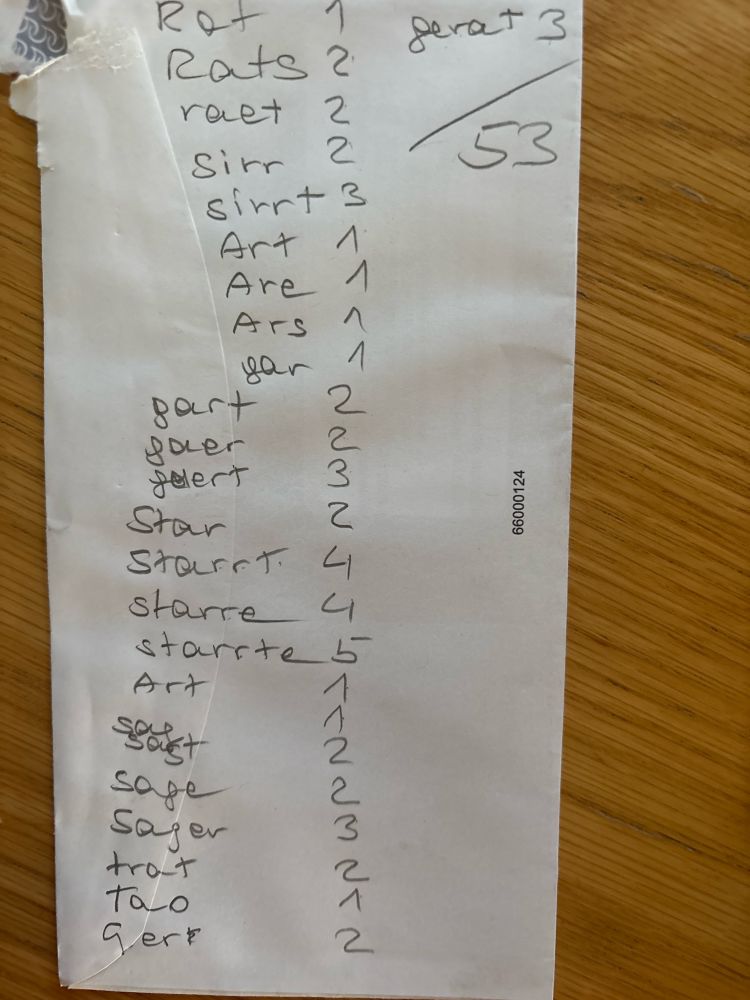 Rat 1
Rats 2
raet 2
sirr 2
sirrt 3
Art 1
Are 1
Ars 1
gar 1
gart 2
gaer 2
gaert 3
Star 2
starrt 4
starre 4
starrte 5
Art 1
sag 1
sagt 2
sage 2
Sager 3
trat 2
Tao 1
2
gerat 3
53
66000124